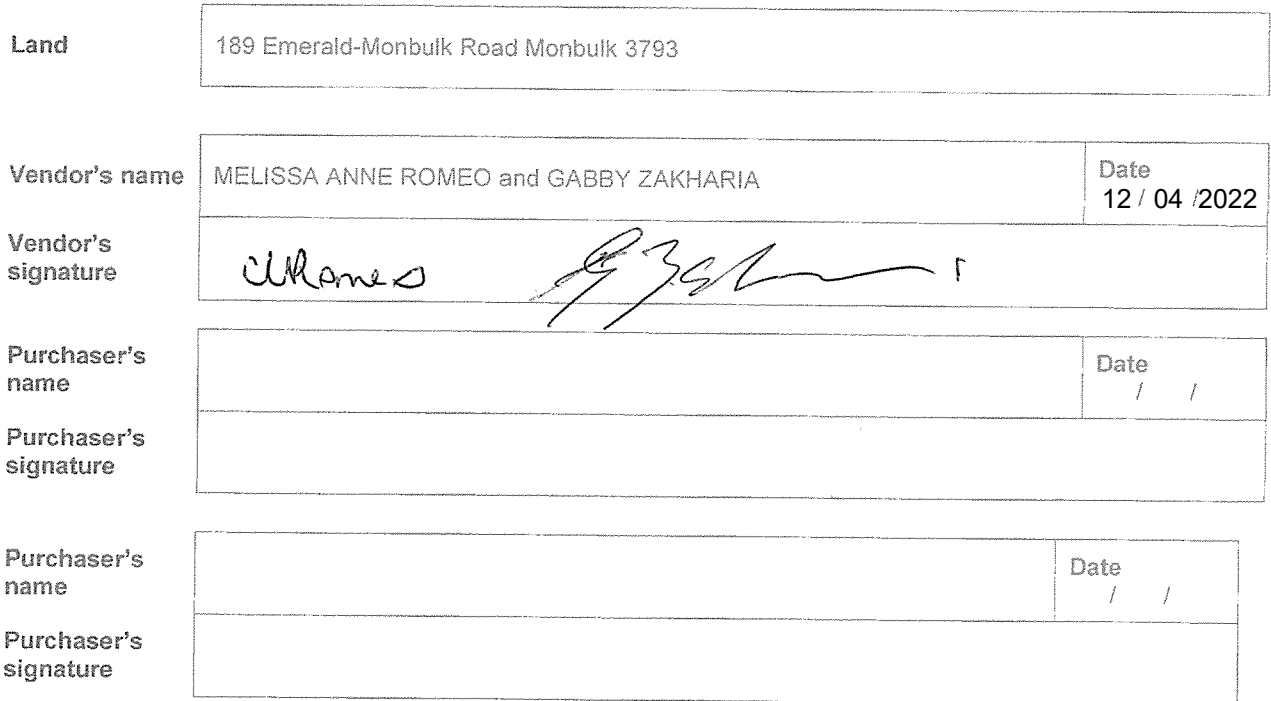 Land
189 Emerald-Monbulk Road Monbulk 3793
Vendor's name
MELISSA ANNE ROMEO and GABBY ZAKHARIA
Date
12 / 04 /2022
Vendor's
signature
Purchaser's
name
Date
/ /
Purchaser's
signature
Purchaser's
name
Date
/ /
Purchaser's
signature